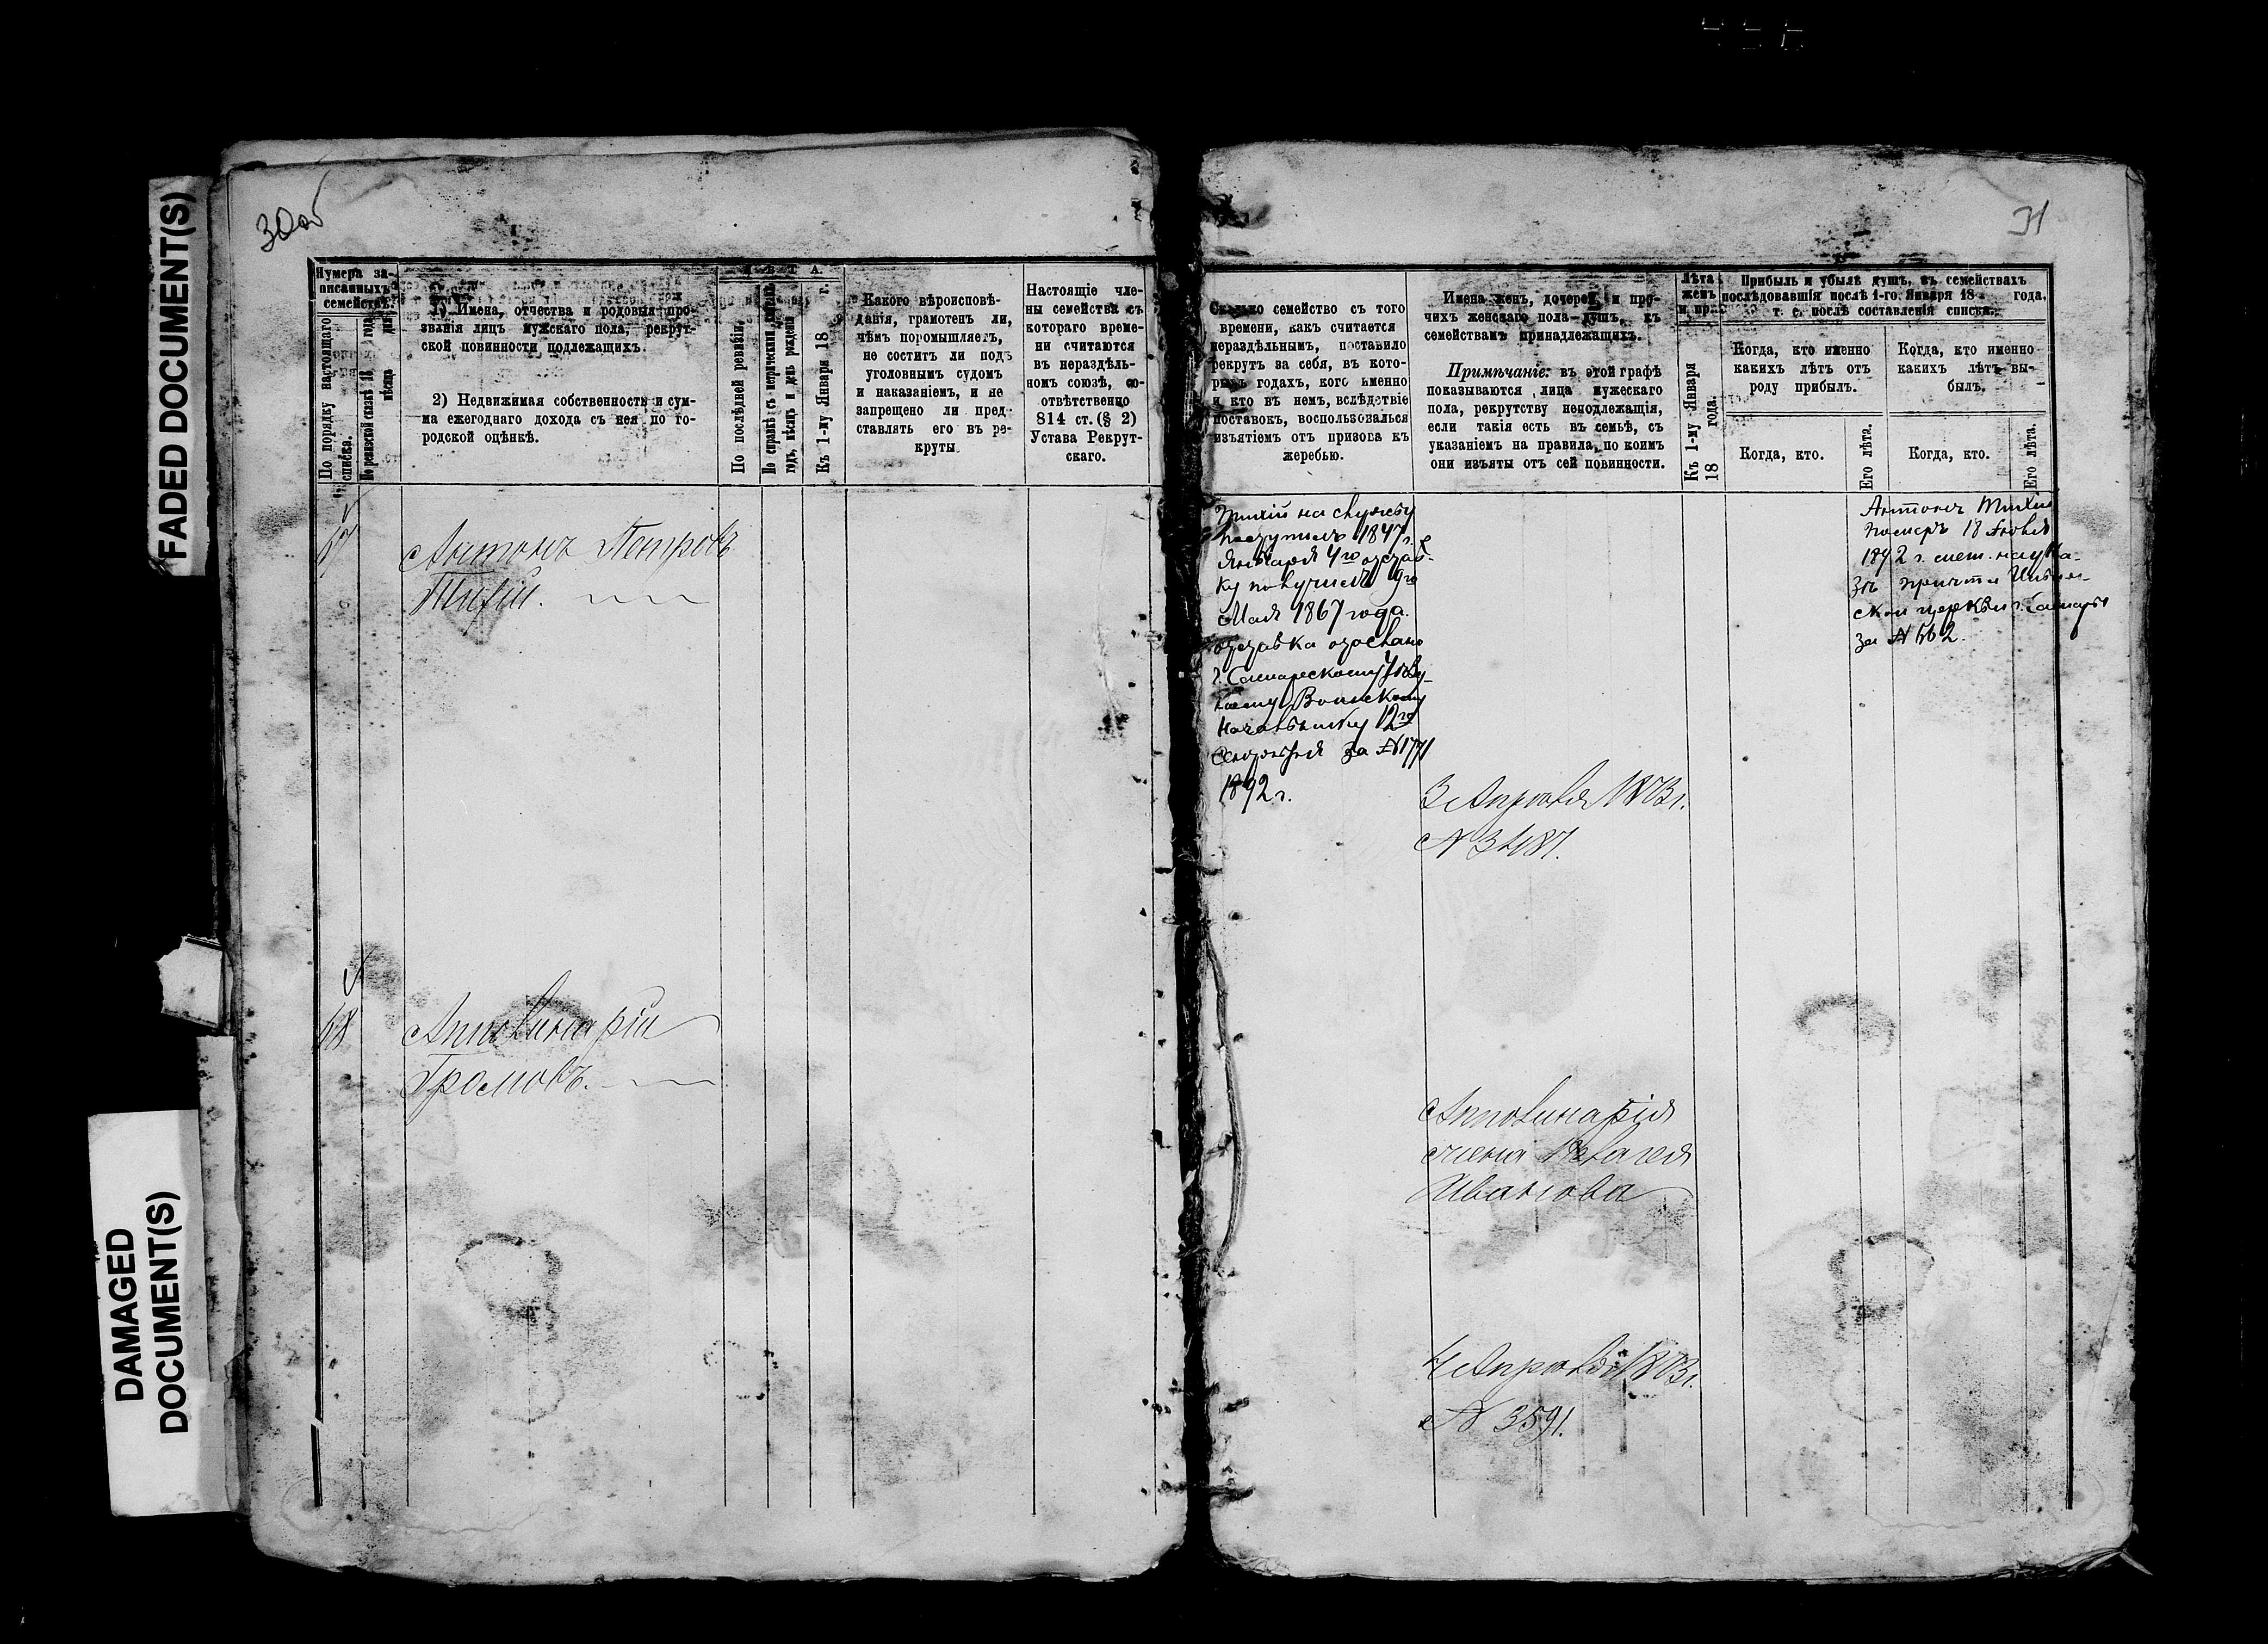 30об
31
FADED DOCUMENT(S)
DAMAGED
DOCUMENT(S)
Нумера за-
писанныхъ
семействъ.
По порядку настоящаго
списка.
По ревизской сказкѣ 18 года
мѣсяца дня
1) Имена, отчества и родовыя про-
званія лицъ мужскаго пола, рекрут-
ской повинности подлежащихъ.
2) Недвижимая собственность и сум-
ма ежегоднаго дохода съ нея по го-
родской оцѣнкѣ.
Л Ѣ Т А.
По послѣдней ревизіи.
По справкѣ съ метрическими книгами
годъ, мѣсяцъ и день рожденія
Къ 1-му Января 18 г.
Какого вѣроисповѣ-
данія, грамотенъ ли,
чѣмъ промышляетъ,
не соститъ ли подъ
уголовнымъ судомъ
и наказаніемъ, и не
запрещено ли пред-
ставлять его въ ре-
круты.
Настоящіе чле-
ны семейства съ
котораго време-
ни считаются
въ нераздѣль-
номъ союзѣ, со-
отвѣтственно
814 ст. (§ 2)
Устава Рекрут-
скаго.
67
Антонъ Петровъ
Тихій.
68
Апполинарій
Громовъ.
Сколько семейство съ того
времени, какъ считается
нераздѣльнымъ, поставило
рекрутъ за себя, въ кото-
рыхъ годахъ, кого именно
и кто въ немъ, вслѣдствіе
поставокъ, воспользовался
изъятіемъ отъ призова къ
жеребью.
Имена женъ, дочерей, и про-
чихъ женскаго пола-душъ, къ
семействамъ принадлежащихъ.
Примѣчаніе: въ этой графѣ
показываются лица мужескаго
пола, рекрутству неподлежащія,
если такія есть въ семьѣ, съ
указаніемъ на правила, по коимъ
они изъяты отъ сей повинности.
Лѣта
женъ
и пр.
Къ 1-му Января
18 года.
Прибыль и убыль душъ, въ семействахъ
послѣдовавшія послѣ 1-го. Января 18 года.
т. е. послѣ составленія списка.
Когда, кто именно
какихъ лѣтъ отъ
роду прибылъ.
Когда, кто именно
какихъ лѣтъ вы-
былъ.
Когда, кто.
Его лѣта.
Когда, кто.
Его лѣта.
Тихій на службу
поступилъ 1847 г.
Января 4го отстав-
ку получилъ 9го
Мая 1867 года.
отставка отослана
г. Самарскому Уѣзд-
ному Воинскому
Начальнику 12го
Сентября за № 1771
1892 г.
3 Апрѣля 1873 г.
№ 3487.
Апполинарія
жена Пелагея
Иванова
4 Апрѣля 1873 г.
№ 3591.
Антонъ Тихій
померъ 18 Іюля
1892 г. смет. на ука-
зъ причта Ильин-
ской церкви г. Самары
за № 662.